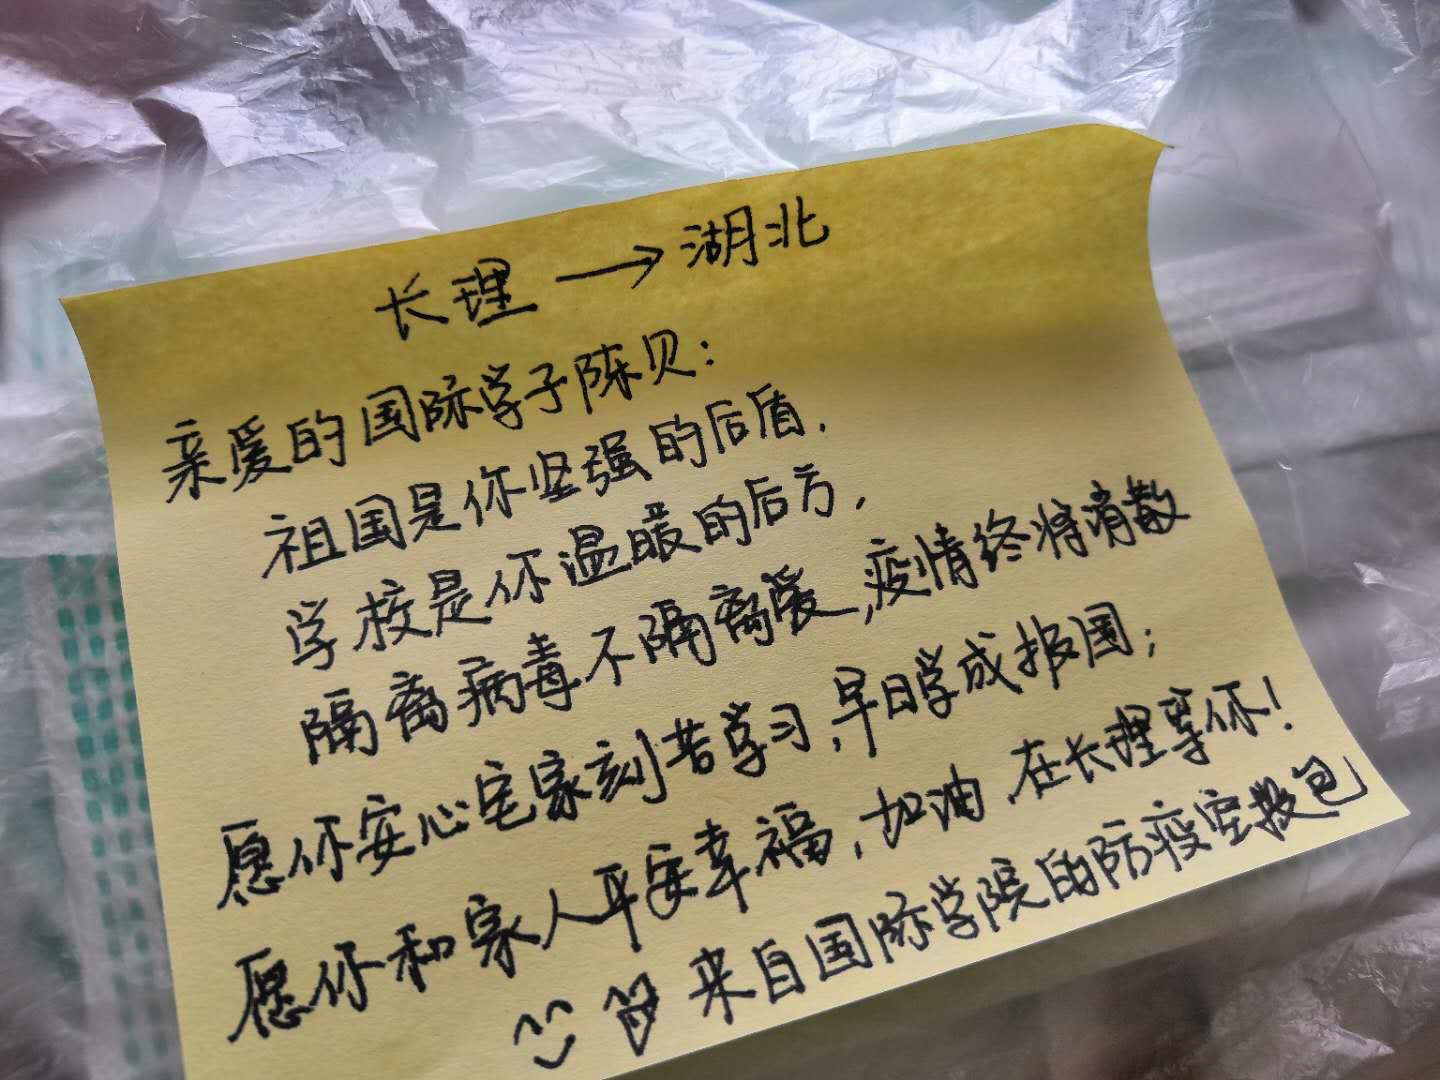 长理→湖北
亲爱的国际学子陈贝：
祖国是你坚强的后盾，
学校是你温暖的后方，
隔离病毒不隔离爱，疫情终将消散
愿你安心宅家刻苦学习，早日学成报国；
愿你和家人平安幸福，加油，在长理等你！
来自国际学院的防疫空投包